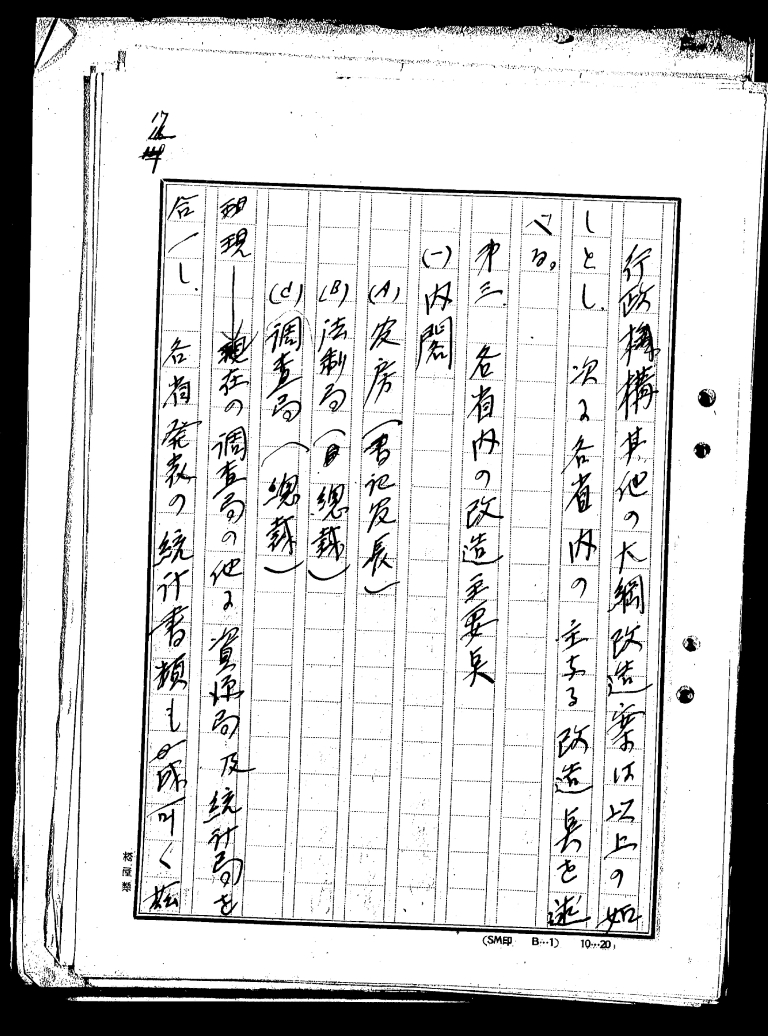 行政機構其他の大綱改造案は以上の如
しとし、次に各省内の主なる改造点を述
べる。
第三、各省内の改造主要点
(一)内閣
(A)官房(書記官長)
(B)法制局(総裁)
(C)調査局(総裁)
現――現在の調査局の他に資源局及統計局を
合一し、各省発表の統計書類も成可く
(SM印 B…1) 10…20